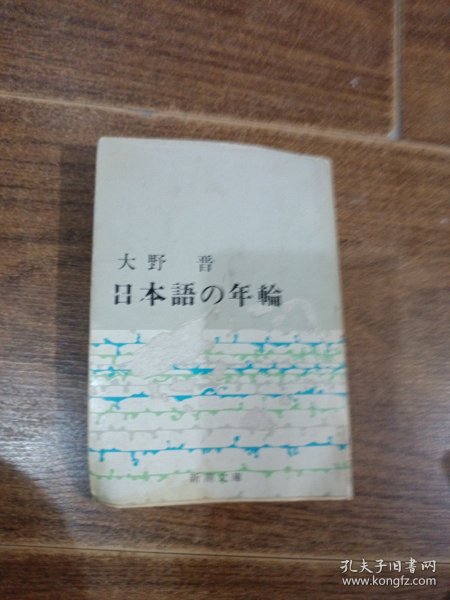 大野 晋
日本語の年輪
新潮文庫
孔夫子旧书网
www.kongfz.com